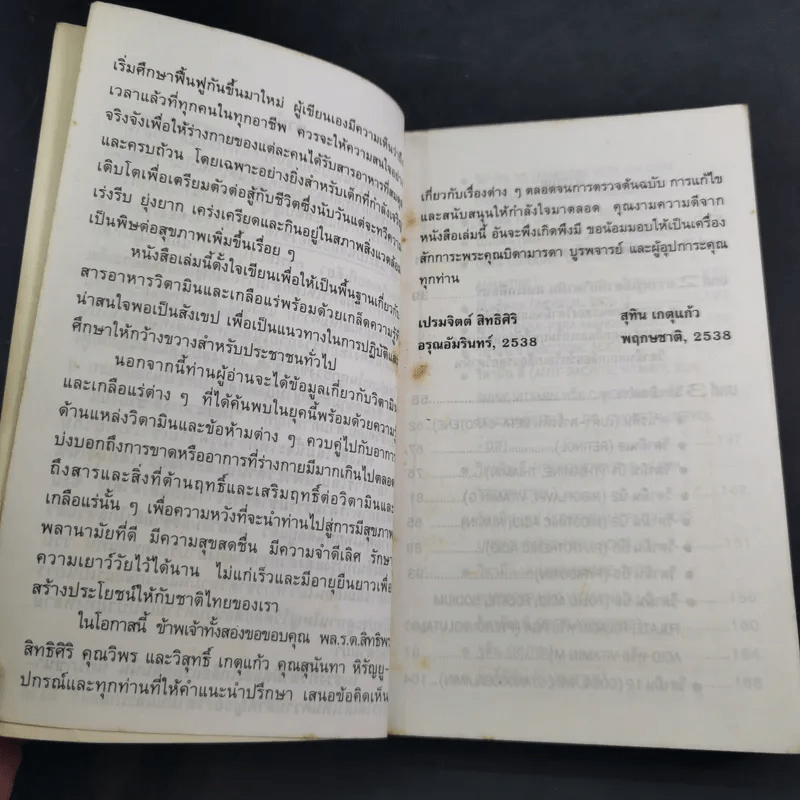 เริ่มศึกษาฟื้นฟูกันขึ้นมาใหม่ ผู้เขียนเองมีความเห็นว่าถึง
เวลาแล้วที่ทุกคนในทุกอาชีพ ควรจะให้ความสนใจอย่าง
จริงจังเพื่อให้ร่างกายของแต่ละคนได้รับสารอาหารที่สมดุล
และครบถ้วน โดยเฉพาะอย่างยิ่งสำหรับเด็กที่กำลังเจริญ
เติบโตเพื่อเตรียมตัวต่อสู้กับชีวิตซึ่งนับวันแต่จะทวีความ
เร่งรีบ ยุ่งยาก เคร่งเครียดและกินอยู่ในสภาพสิ่งแวดล้อม
เป็นพิษต่อสุขภาพเพิ่มขึ้นเรื่อย ๆ
หนังสือเล่มนี้ตั้งใจเขียนเพื่อให้เป็นพื้นฐานเกี่ยวกับ
สารอาหารวิตามินและเกลือแร่พร้อมด้วยเกล็ดความรู้ที่
น่าสนใจพอเป็นสังเขป เพื่อเป็นแนวทางในการปฏิบัติและ
ศึกษาให้กว้างขวางสำหรับประชาชนทั่วไป
นอกจากนี้ท่านผู้อ่านจะได้ข้อมูลเกี่ยวกับวิตามิน
และเกลือแร่ต่าง ๆ ที่ได้ค้นพบในยุคนี้พร้อมด้วยความรู้
ด้านแหล่งวิตามินและข้อห้ามต่าง ๆ ควบคู่ไปกับอาการ
บ่งบอกถึงการขาดหรืออาการที่ร่างกายมีมากเกินไปตลอด
ถึงสารและสิ่งที่ต้านฤทธิ์และเสริมฤทธิ์ต่อวิตามินและ
เกลือแร่นั้น ๆ เพื่อความหวังที่จะนำท่านไปสู่การมีสุขภาพ
พลานามัยที่ดี มีความสุขสดชื่น มีความจำดีเลิศ รักษา
ความเยาว์วัยไว้ได้นาน ไม่แก่เร็วและมีอายุยืนยาวเพื่อ
สร้างประโยชน์ให้กับชาติไทยของเรา
ในโอกาสนี้ ข้าพเจ้าทั้งสองขอขอบคุณ พล.ร.ต.สิทธิพร
สิทธิศิริ คุณวิพร และวิสุทธิ์ เกตุแก้ว คุณสุนันทา หิรัญญู-
ปกรณ์และทุกท่านที่ให้คำแนะนำปรึกษา เสนอข้อคิดเห็น
เกี่ยวกับเรื่องต่าง ๆ ตลอดจนการตรวจต้นฉบับ การแก้ไข
และสนับสนุนให้กำลังใจมาตลอด คุณงามความดีจาก
หนังสือเล่มนี้ อันจะพึงเกิดพึงมี ขอน้อมมอบให้เป็นเครื่อง
สักการะพระคุณบิดามารดา บูรพจารย์ และผู้อุปการะคุณ
ทุกท่าน
เปรมจิตต์ สิทธิศิริ สุทิน เกตุแก้ว
อรุณอัมรินทร์, 2538 พฤกษชาติ, 2538